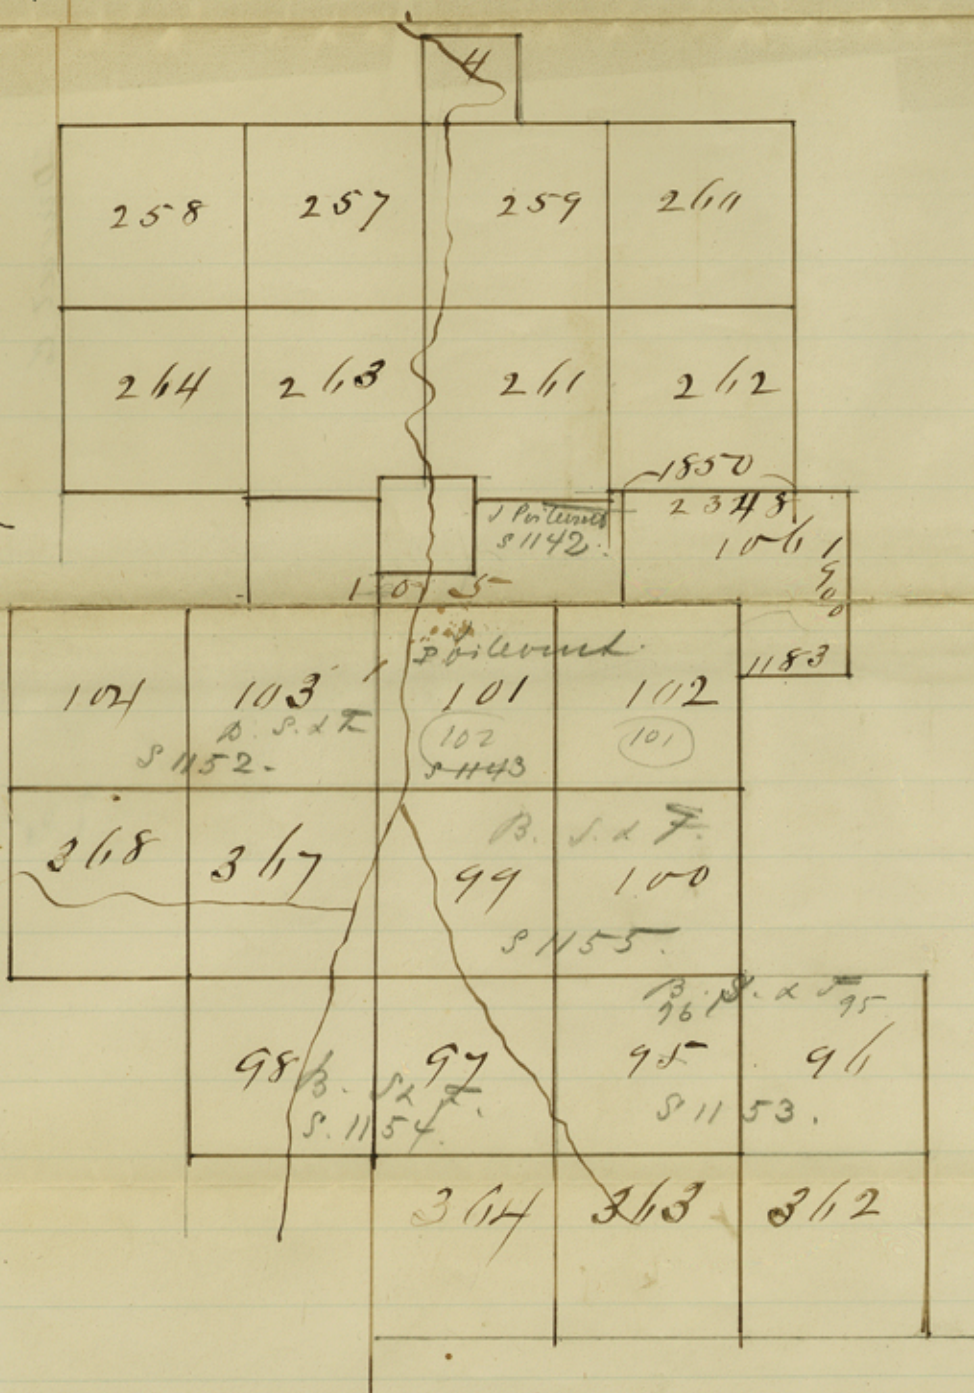 4
258 257 259 260
264 263 261 262
1850
2348
J Poitevent
S 1142.
106
1900
105
Poitevent
1183
104 103 101 102
B. S. & F.
102 101
S 1152.
S 1143
B. S. & F.
368 367 99 100
S 1155.
B. S. & F.
96 95
98 97 95 96
B. S & F.
S. 1154.
S 1153.
364 363 362